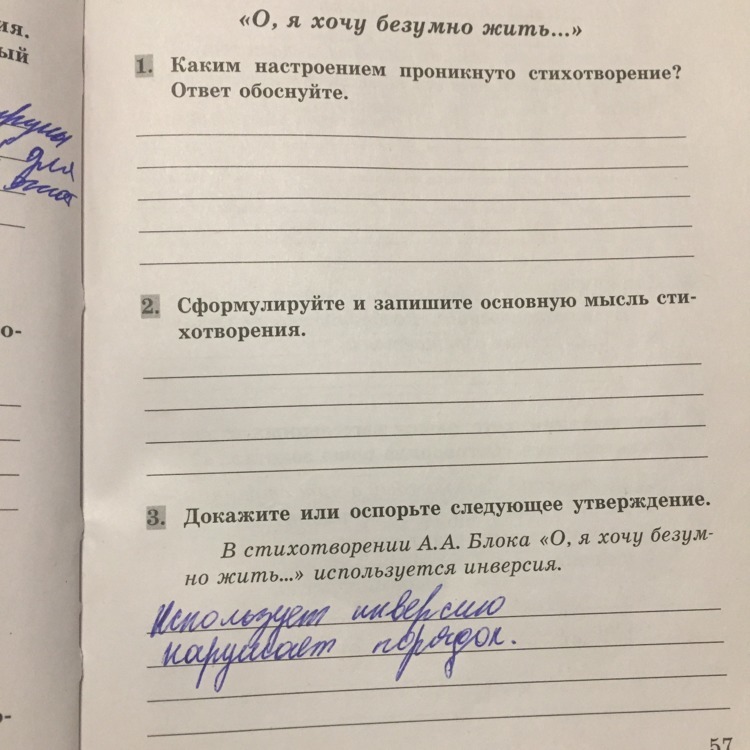 ия.
ый
для
о-
«О, я хочу безумно жить...»
1. Каким настроением проникнуто стихотворение?
Ответ обоснуйте.
2. Сформулируйте и запишите основную мысль сти-
хотворения.
3. Докажите или оспорьте следующее утверждение.
В стихотворении А.А. Блока «О, я хочу безум-
но жить...» используется инверсия.
Использует инверсию
нарушает порядок.
57